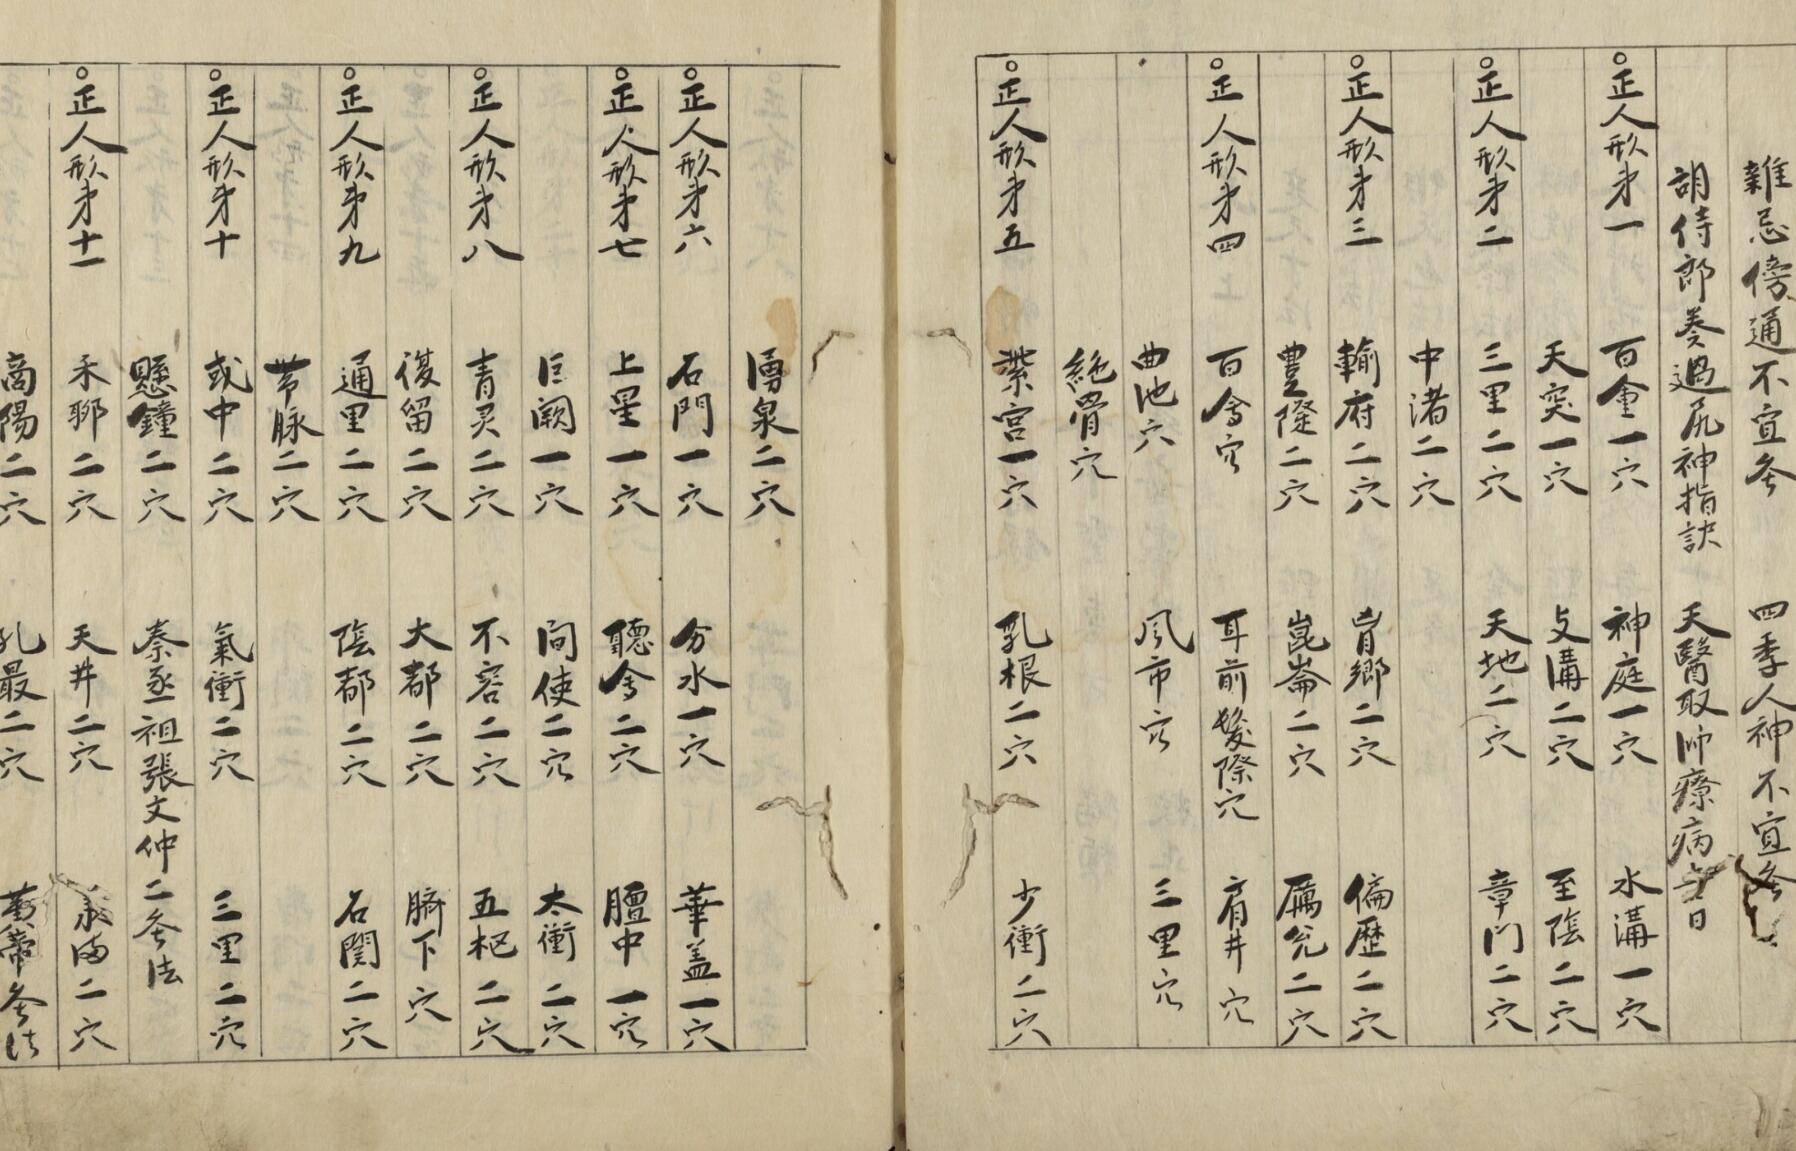 雜忌傍通不宜灸 四季人神不宜灸
胡侍郎奏過尻神指訣 天醫取師療病吉日
○正人形第一 百會一穴 神庭一穴 水溝一穴
天突一穴 支溝二穴 至陰二穴
○正人形第二 三里二穴 天地二穴 章门二穴
中渚二穴
○正人形第三 輸府二穴 胷鄉二穴 偏歷二穴
豊隆二穴 崑崙二穴 厲兊二穴
○正人形第四 百會穴 耳前髮際穴 肩井穴
曲池穴 風市穴 三里穴
絶骨穴
○正人形第五 紫宫一穴 乳根二穴 少衝二穴
湧泉二穴
○正人形第六 石門一穴 分水一穴 華盖一穴
○正人形第七 上星一穴 聽會二穴 膻中一穴
巨阙一穴 间使二穴 太衝二穴
○正人形第八 青灵二穴 不容二穴 五枢二穴
復留二穴 大都二穴 臍下穴
○正人形第九 通里二穴 陰都二穴 石関二穴
帯脉二穴
○正人形第十 或中二穴 氣衝二穴 三里二穴
懸鐘二穴 秦丞祖張文仲二灸法
○正人形第十一 禾聊二穴 天井二穴 承満二穴
商陽二穴 孔最二穴 黄帝灸法